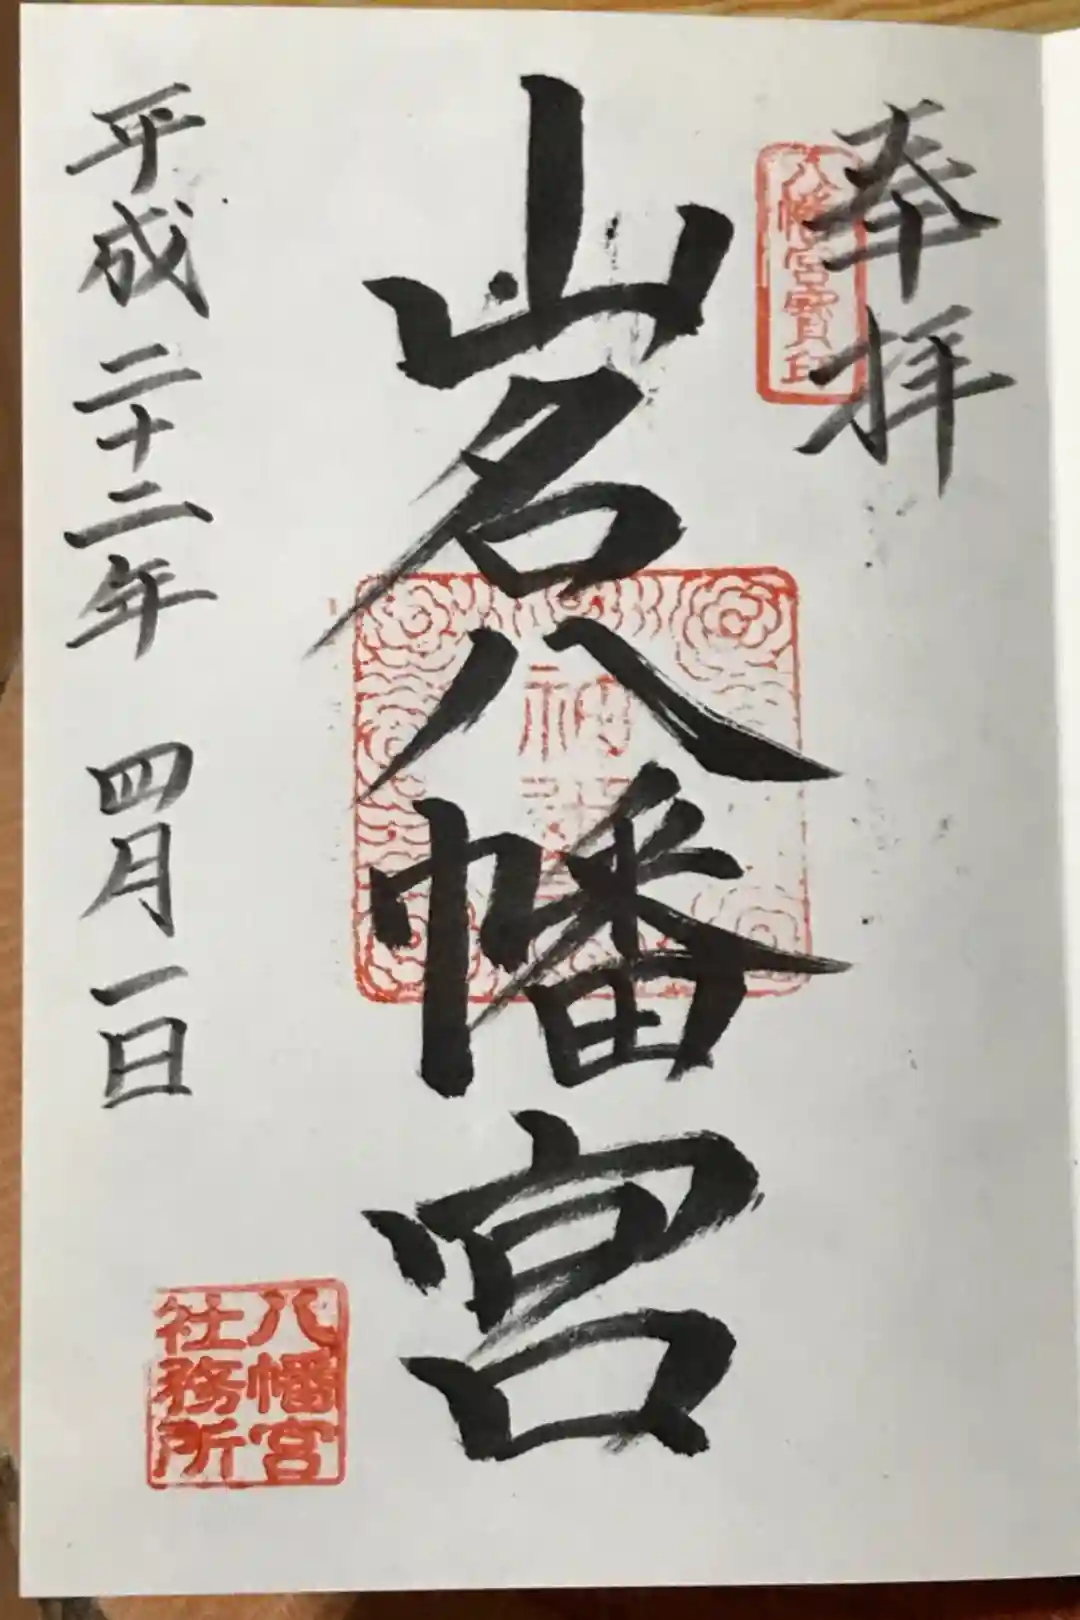 奉拝
八幡宮寳印
山名八幡宮
平成二十二年 四月一日
八幡宮
社務所